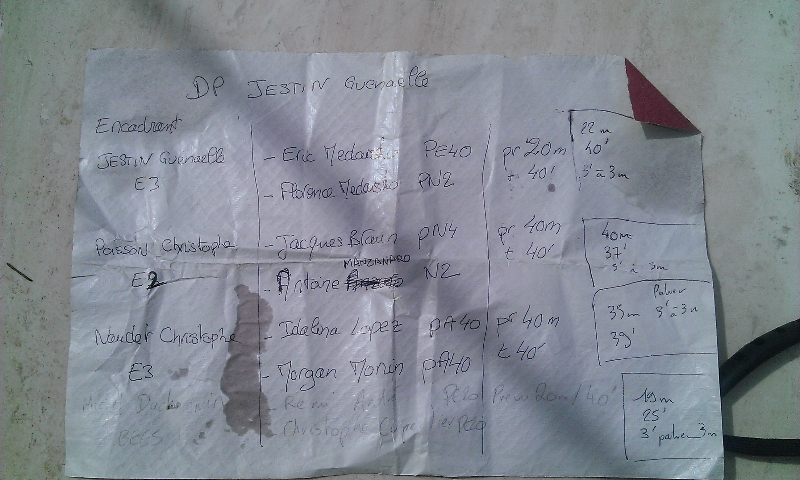 DP JESTIN Guenaelle
Encadrant
JESTIN Guenaelle
E3
- Eric PE40
- Florence PN2
pr 20m
t 40'
22 m
40'
3' à 3m
Poisson Christophe
E2
- Jacques PN4
MANZANARO
- Antoine N2
pr 40m
t 40'
40m
37'
3' à 3m
Christophe
E3
- Idalina Lopez PA40
- Morgan Monin PA40
pr 40m
t 40'
Palier
35m 8' à 3m
39'
BEES
- Rémi PE20
- Christophe PE20
Prevu 20m/40'
19m
25'
3' palier 3m